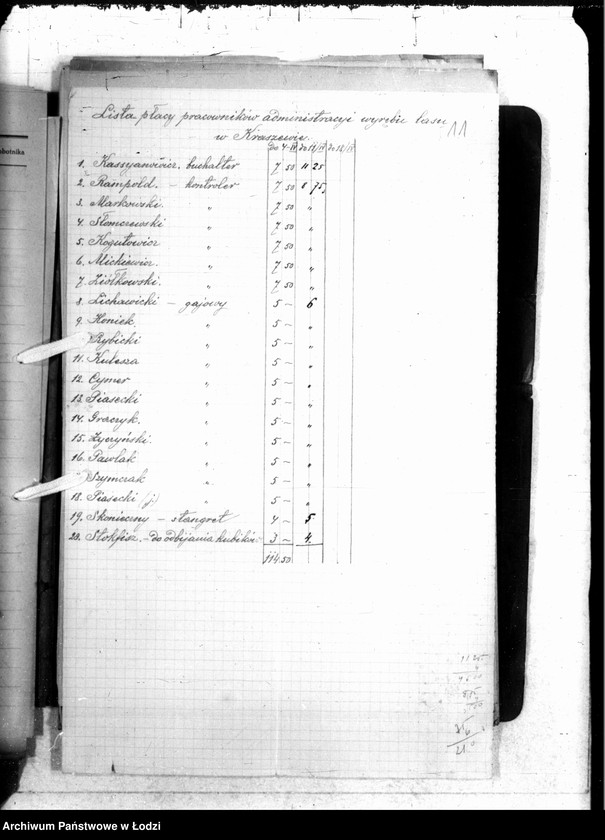 obotnika
Lista płacy pracowników administracyi wyrębu lasu
w Kraszewie.
11
do 4/IV do 11/IV do 18/IV
1. Kassyanowicz, buchalter 7 50 11 25
2. Rampold. — kontroler 7 50 8 75
3. Markowski. " 7 50 "
4. Słomczewski " 7 50 "
5. Kogutowicz " 7 50 "
6. Mickiewicz. " 7 50 "
7. Ziółkowski. " 7 50 "
8. Lichawicki — gajowy 5 — 6
9. Koniek " 5 — "
Rybicki " 5 — "
11. Kulesza " 5 — "
12. Cymer " 5 — "
13. Piasecki " 5 — "
14. Graczyk. " 5 — "
15. Zyczyński. " 5 — "
16. Pawlak " 5 — "
Szymczak " 5 — "
18. Piasecki (j.) " 5 — "
19. Skonieczny — stangret 4 — 5
20. Stokfisz. — do odbijania kubików 3 — 4
114.50
Archiwum Państwowe w Łodzi